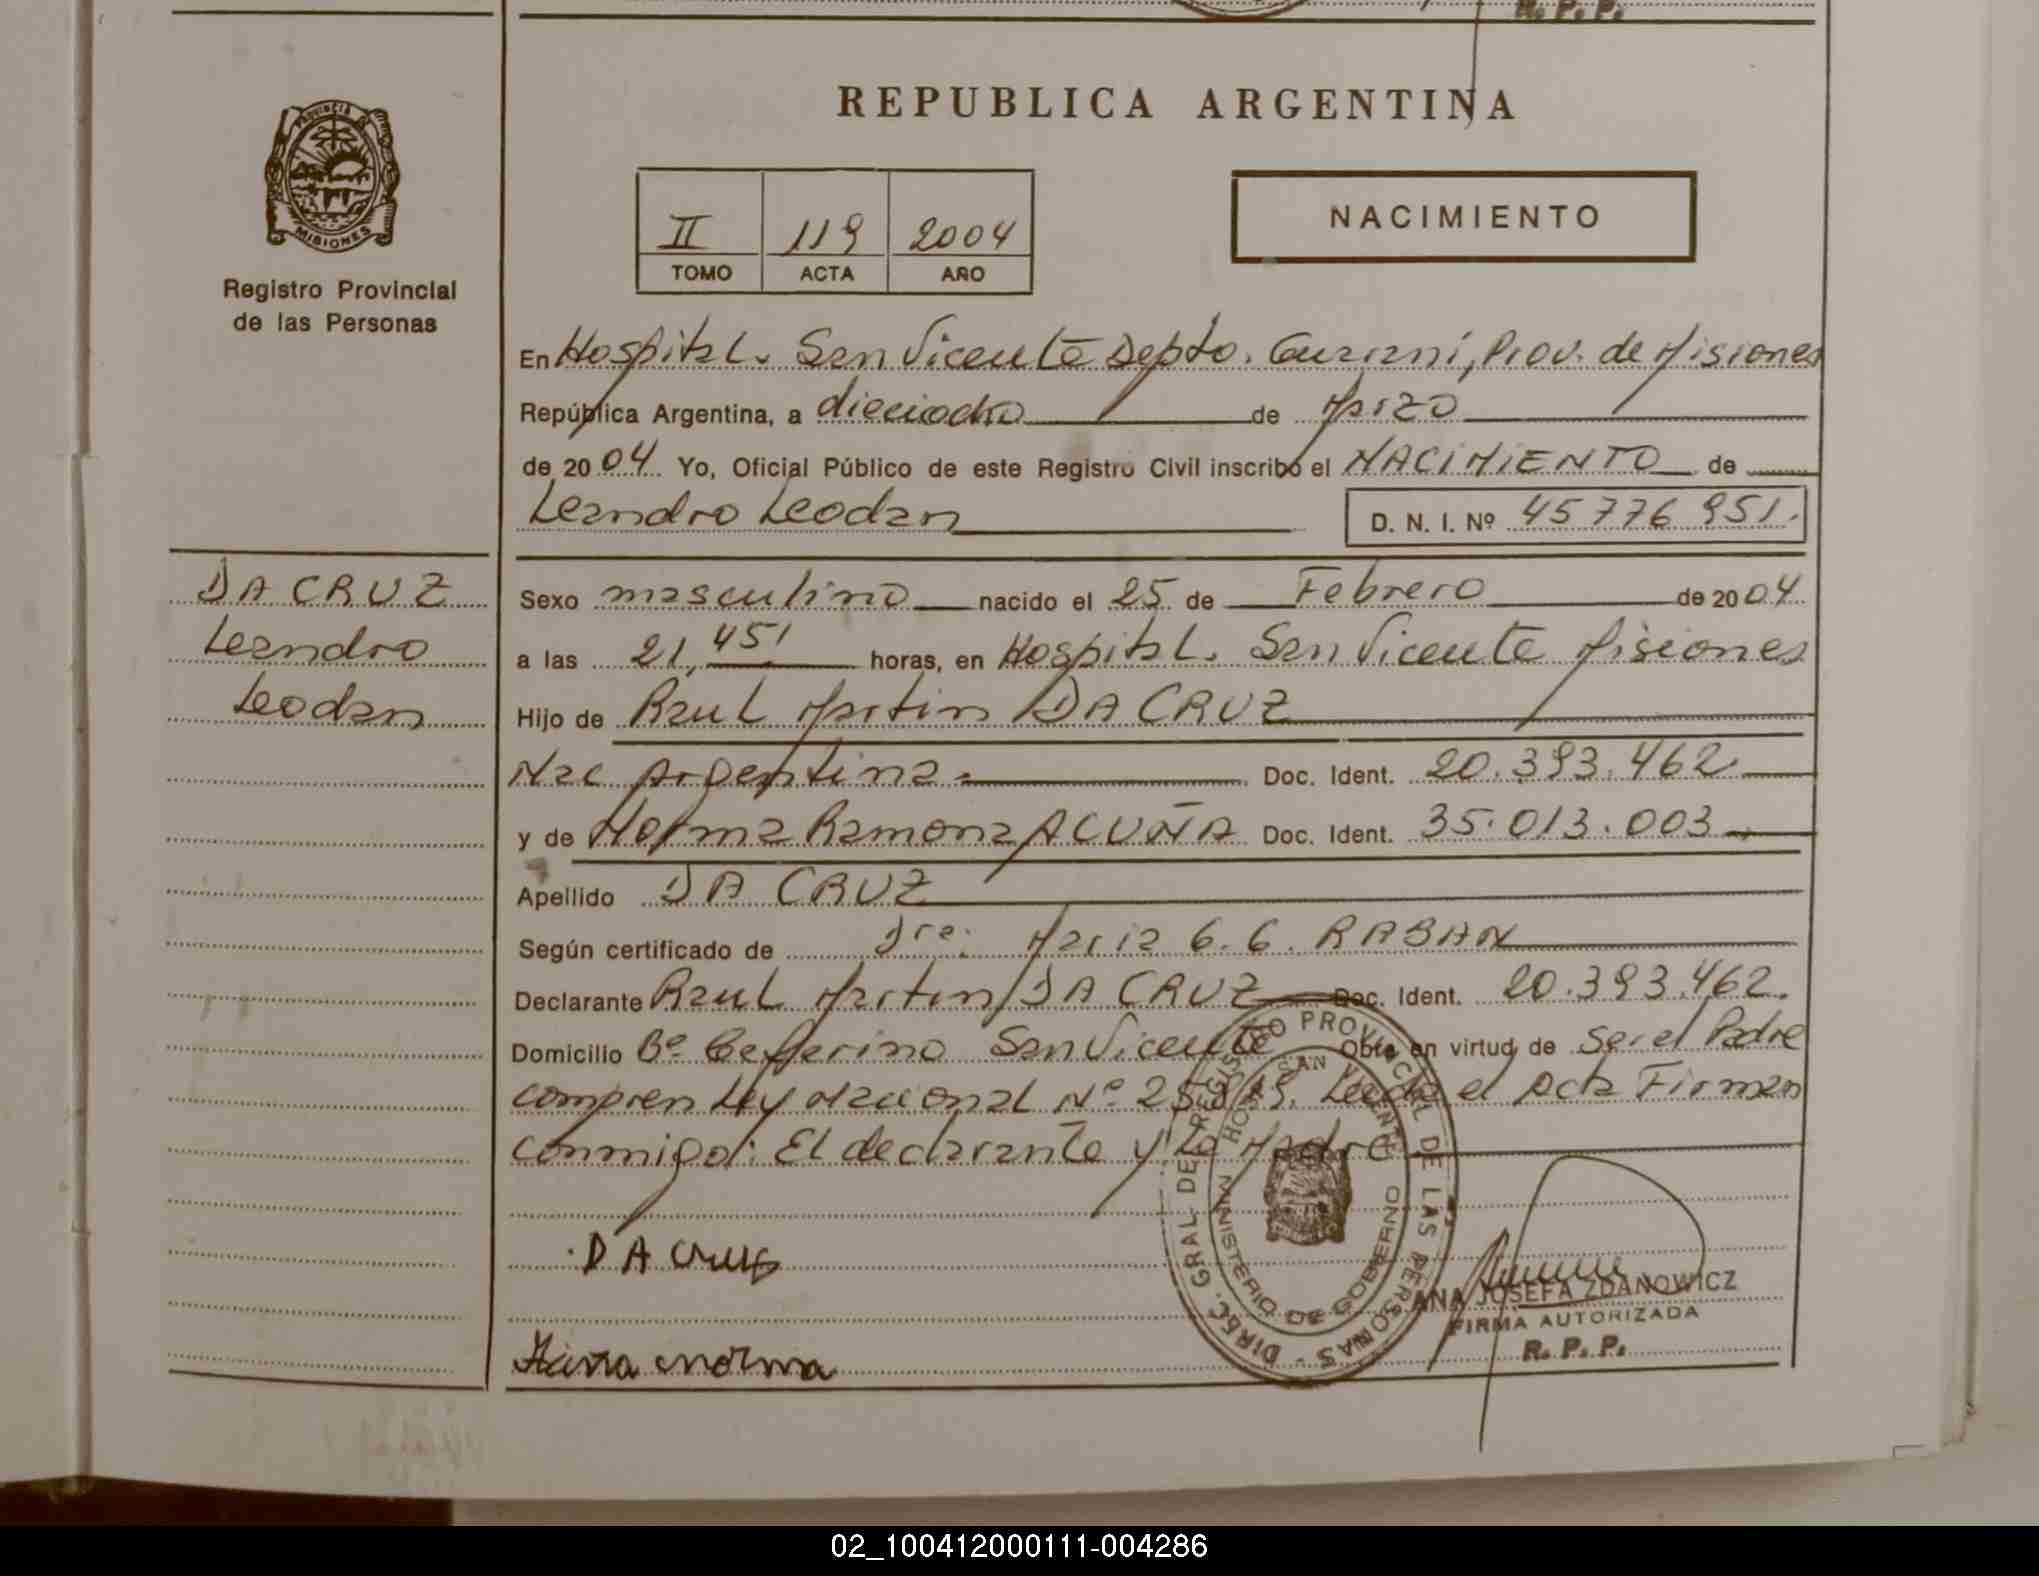 R. P. P.
REPUBLICA ARGENTINA
PROVINCIA DE
MISIONES
Registro Provincial
de las Personas
II 119 2004
TOMO ACTA AÑO
NACIMIENTO
En Hospital. San Vicente Depto. Guaraní, Prov. de Misiones
República Argentina, a dieciocho de Marzo
de 2004 Yo, Oficial Público de este Registro Civil inscribo el NACIMIENTO de
Leandro Leodan D. N. I. Nº 45776951.
DA CRUZ
Leandro
Leodan
Sexo masculino nacido el 25 de Febrero de 2004
a las 21,45' horas, en Hospital. San Vicente Misiones
Hijo de Raul Martin DA CRUZ
Nac Argentina. Doc. Ident. 20.393.462.
y de Norma Ramona ACUÑA Doc. Ident. 35.013.003
Apellido DA CRUZ
Según certificado de Dra: Maria G. G. RABAN
Declarante Raul Martin DA CRUZ Doc. Ident. 20.393.462.
Domicilio Bº Ceferino San Vicente Obra en virtud de ser el Padre
compren Ley Nacional Nº 25819. Leida el Acta Firman
conmigo: El declarante y La Madre
DIREC. GRAL DEL REGISTRO PROVINCIAL DE LAS PERSONAS
HOSP. SAN VICENTE
MINISTERIO DE GOBIERNO
DA Cruz
norma
ANA JOSEFA ZDANOWICZ
FIRMA AUTORIZADA
R. P. P.
02_100412000111-004286